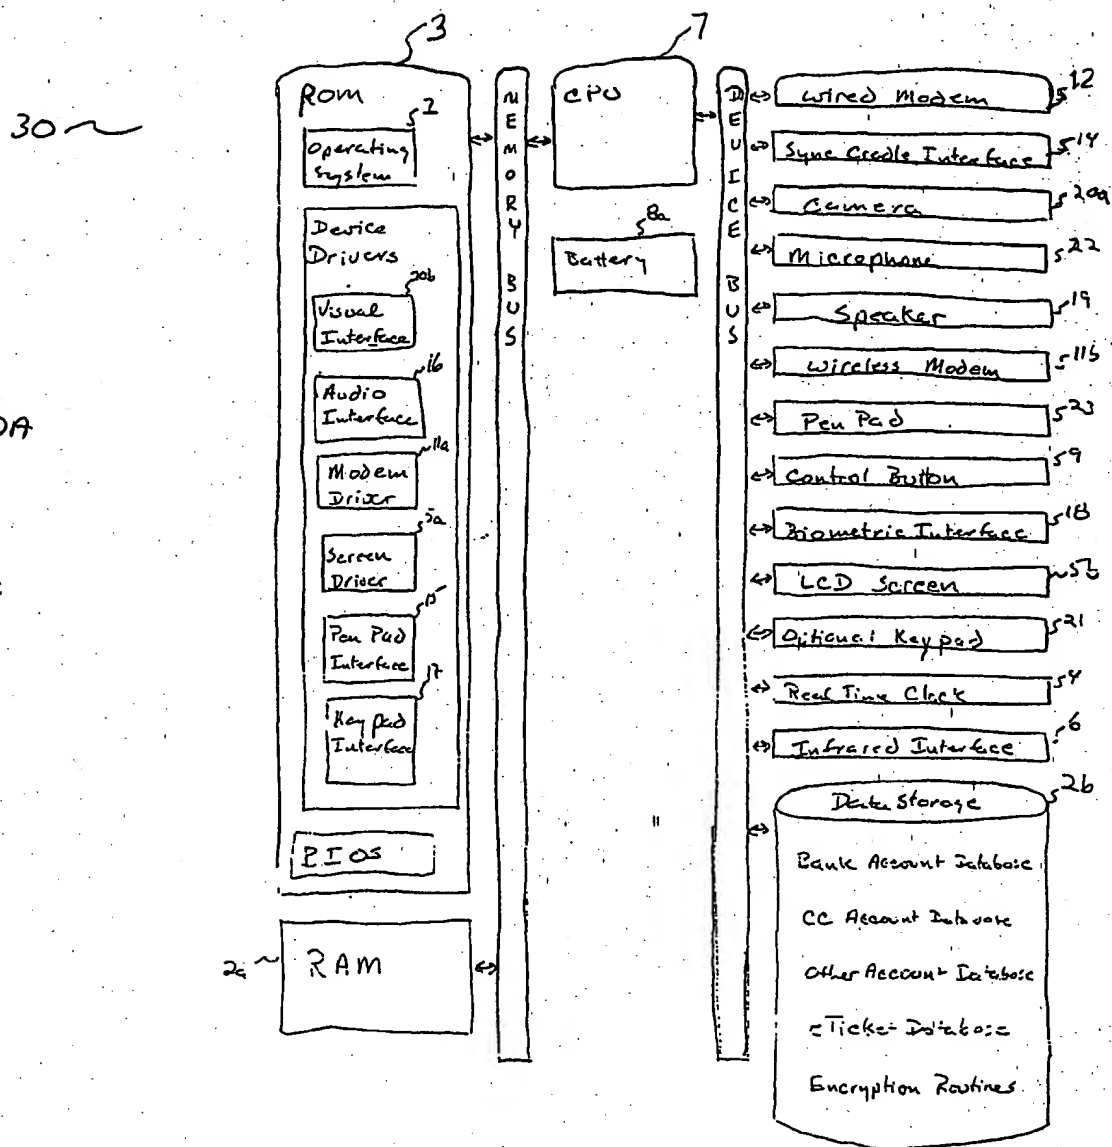 30
3
ROM
2
Operating
System
Device
Drivers
20b
Visual
Interface
16
Audio
Interface
11a
Modem
Driver
5a
Screen
Driver
15
Pen Pad
Interface
17
Keypad
Interface
BIOS
2a
RAM
MEMORY BUS
7
CPU
8a
Battery
DEVICE BUS
Wired Modem
12
Sync Cradle Interface
14
Camera
20a
Microphone
22
Speaker
19
Wireless Modem
11b
Pen Pad
23
Control Button
9
Biometric Interface
18
LCD Screen
5b
Optional Keypad
21
Real Time Clock
4
Infrared Interface
6
Data Storage
2b
Bank Account Database
CC Account Database
Other Account Database
eTicket Database
Encryption Routines